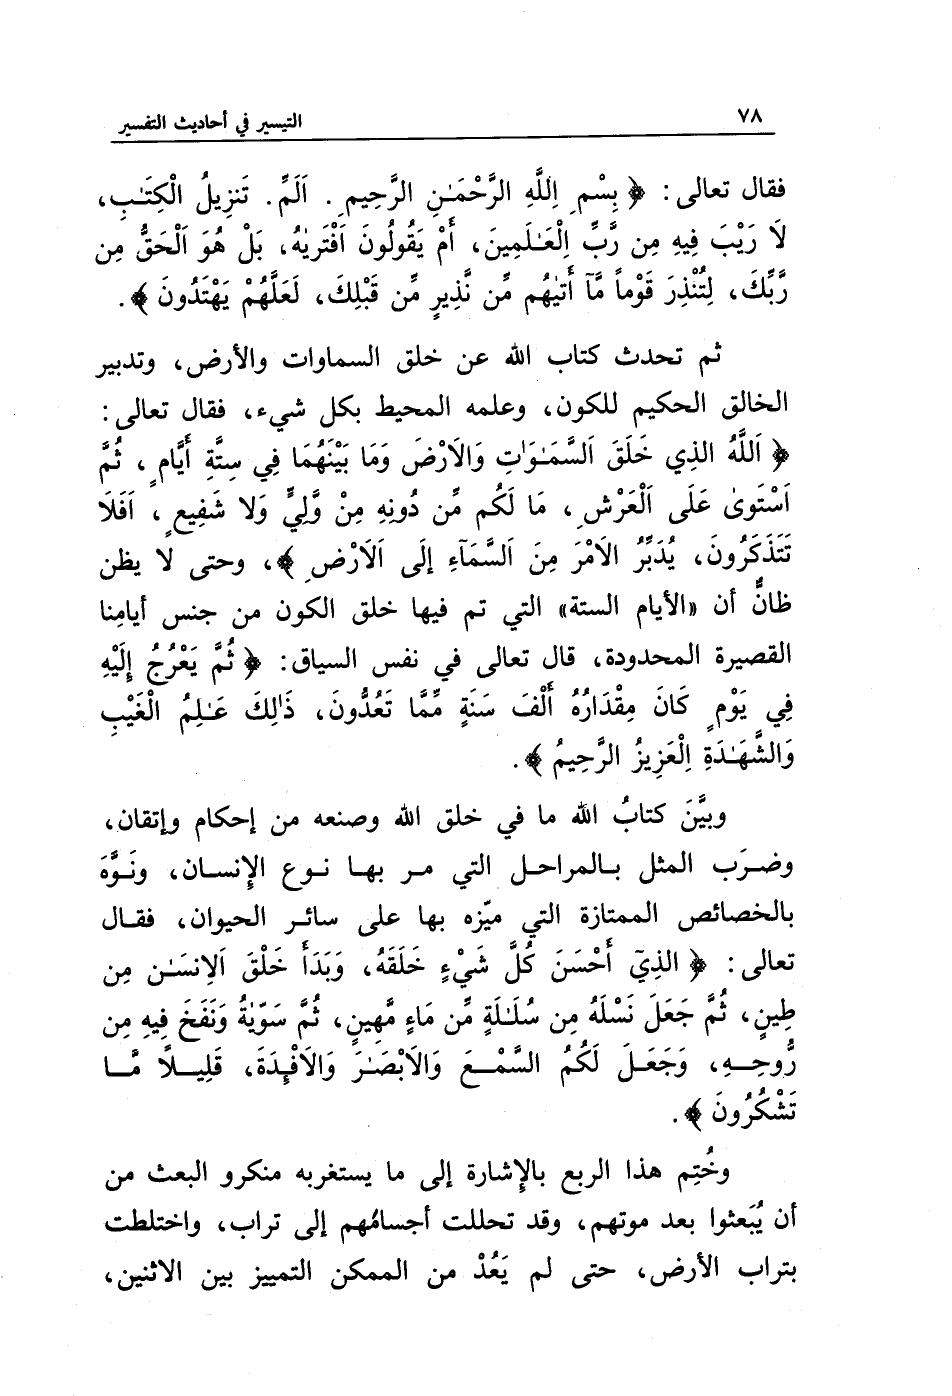 ٧٨
التيسير في أحاديث التفسير
فقال تعالى: ﴿ بِسْمِ اِللَّهِ الرَّحْمَـٰنِ الرَّحِيمِ. اَلَمِّ. تَنزِيلُ الْكِتَـٰبِ،
لَا رَيْبَ فِيهِ مِن رَّبِّ اِلْعَـٰلَمِينَ، أَمْ يَقُولُونَ اَفْتَرِيٰهُ، بَلْ هُوَ اَلْحَقُّ مِن
رَّبِّكَ، لِتُنْذِرَ قَوْماً مَّآ أَتٰيٰهُم مِّن نَّذِيرٍ مِّن قَبْلِكَ، لَعَلَّهُمْ يَهْتَدُونَ ﴾.
ثم تحدث كتاب الله عن خلق السماوات والأرض، وتدبير
الخالق الحكيم للكون، وعلمه المحيط بكل شيء، فقال تعالى:
﴿ اَللَّهُ الذِي خَلَقَ اَلسَّمَـٰوَاتِ وَالَارْضَ وَمَا بَيْنَهُمَا فِي سِتَّةِ أَيَّامٍ، ثُمَّ
اَسْتَوىٰ عَلَى اَلْعَرْشِ، مَا لَكُم مِّن دُونِهِ مِنْ وَّلِيٍّ وَلا شَفِيعٍ، اَفَلَا
تَتَذَكَّرُونَ، يُدَبِّرُ الَامْرَ مِنَ اَلسَّمَآءِ إِلَى اَلَارْضِ ﴾، وحتى لا يظن
ظانٌّ أن «الأيام الستة» التي تم فيها خلق الكون من جنس أيامِنا
القصيرة المحدودة، قال تعالى في نفس السياق: ﴿ ثُمَّ يَعْرُجُ إِلَيْهِ
فِي يَوْمٍ كَانَ مِقْدَارُهُ أَلْفَ سَنَةٍ مِّمَّا تَعُدُّونَ، ذَالِكَ عَـٰلِمُ الْغَيْبِ
وَالشَّهَـٰدَةِ اِلْعَزِيزُ الرَّحِيمُ ﴾.
وبيَّنَ كتابُ الله ما في خلق الله وصنعه من إحكام وإتقان،
وضرَب المثل بالمراحل التي مر بها نوع الإنسان، ونَوَّهَ
بالخصائص الممتازة التي ميّزه بها على سائر الحيوان، فقال
تعالى: ﴿ الذِيٓ أَحْسَنَ كُلَّ شَيْءٍ خَلَقَهُ، وَبَدَأَ خَلْقَ اَلِانسَـٰنِ مِن
طِينٍ، ثُمَّ جَعَلَ نَسْلَهُ مِن سُلَـٰلَةٍ مِّن مَاءٍ مَّهِينٍ، ثُمَّ سَوّيٰهُ وَنَفَخَ فِيهِ مِن
رُّوحِهِ، وَجَعَلَ لَكُمُ السَّمْعَ وَالَابْصَـٰرَ وَالَافْـِٕدَةَ، قَلِيلًا مَّا
تَشْكُرُونَ ﴾.
وخُتِم هذا الربع بالإِشارة إلى ما يستغربه منكرو البعث من
أن يُبَعثوا بعد موتهم، وقد تحللت أجسامُهم إلى تراب، واختلطت
بتراب الأرض، حتى لم يَعُدْ من الممكن التمييز بين الاثنين،